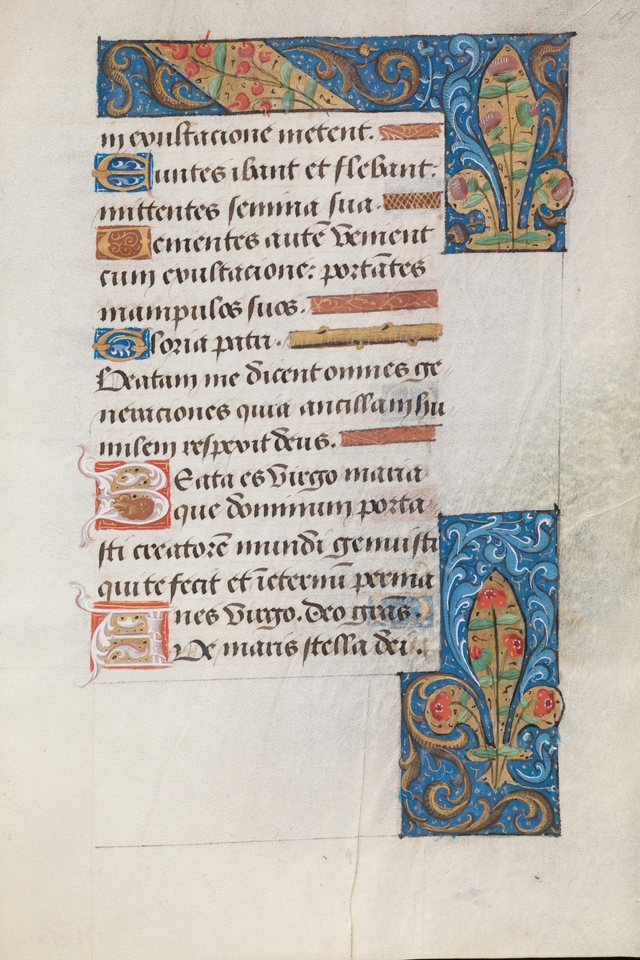 in exultacione metent.
Euntes ibant et flebant:
mittentes semina sua.
Venientes autē venient
cum exultacione: portātes
manipulos suos.
Gloria patri.
Beatam me dicent omnes ge
neraciones quia ancillam hu
milem respexit deus.
Beata es virgo maria
que dominum porta
sti creatorē mundi genuisti
qui te fecit et īeternū perma
nes virgo. deo grās.
Ave maris stella dei.